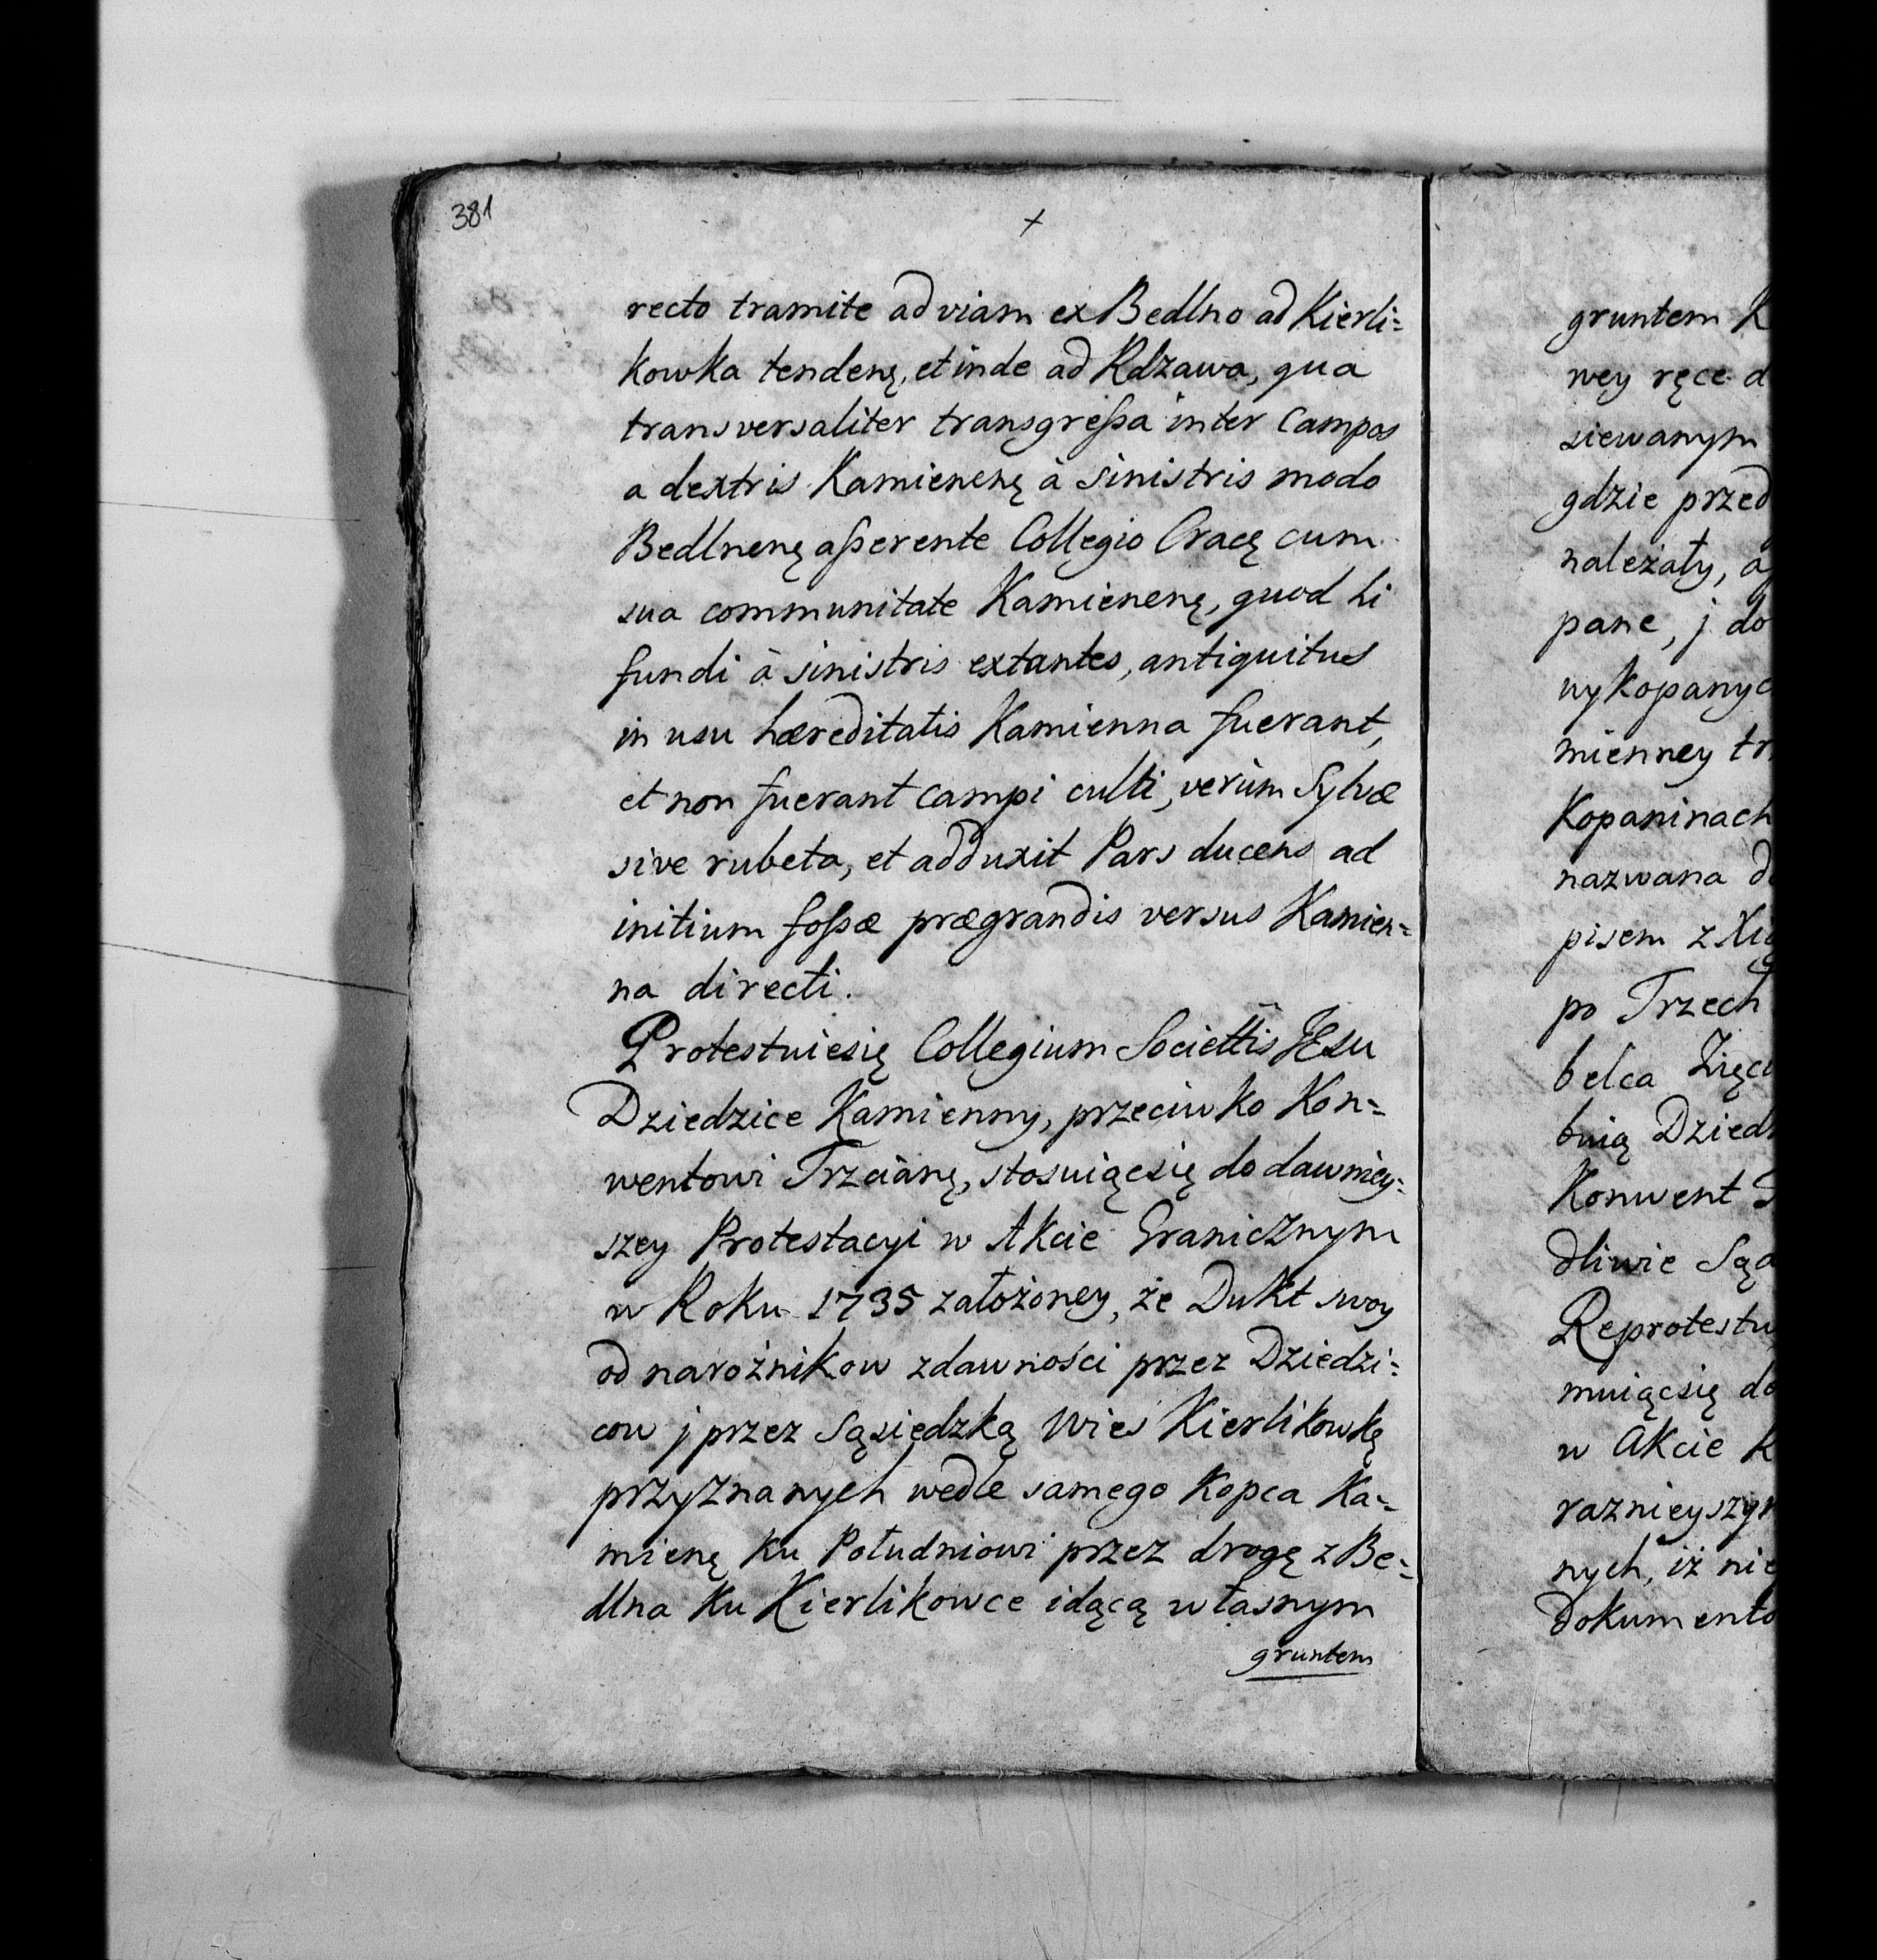 381
+
recto tramite ad viam ex Bedlno ad Kierli=
kowka tendenę, et inde ad Rdzawa, qua
transversaliter transgreſsa inter campos
a dextris Kamienenę à sinistris modo
Bedlnenę aſserente Collegio Cracę cum
sua communitate Kamienenę, quod hi
fundi à sinistris extantes, antiquitus
in usu hæreditatis Kamienna fuerant,
et non fuerant campi culti, verùm Sylvæ
sive rubeta, et adduxit Pars ducens ad
initium foſsæ prægrandis versus Kamien=
na directi.
Protestuiesię Collegium Societtis JEsu
Dziedzice Kamienny, przeciwko Kon=
wentowi Trzcianę, stosuiącsię do dawniey=
szey Protestacyi w Akcie Granicznym
w Roku 1735 założoney, że Dukt swoy
od narożnikow zdawności przez Dziedzi=
cow j przez Sąsiędzką Wies Kierlikowkę
przyznanych wedle samego Kopca Ka=
mienę ku Południowi przez drogę z Be=
dlna ku Kierlikowce idącą własnym
gruntem
gruntem K
wey ręce d
siewanym
gdzie przed
należały, a
pane, j do
wykopanyc
mienney tr
Kopaninach
nazwana d
pisem z Xią
po Trzech
belca Zięc
bnią Dzied
Konwent
dliwie Sąd
Reprotestu
muiącsię do
w Akcie K
raznieyszym
nych, iż nie
dokumento